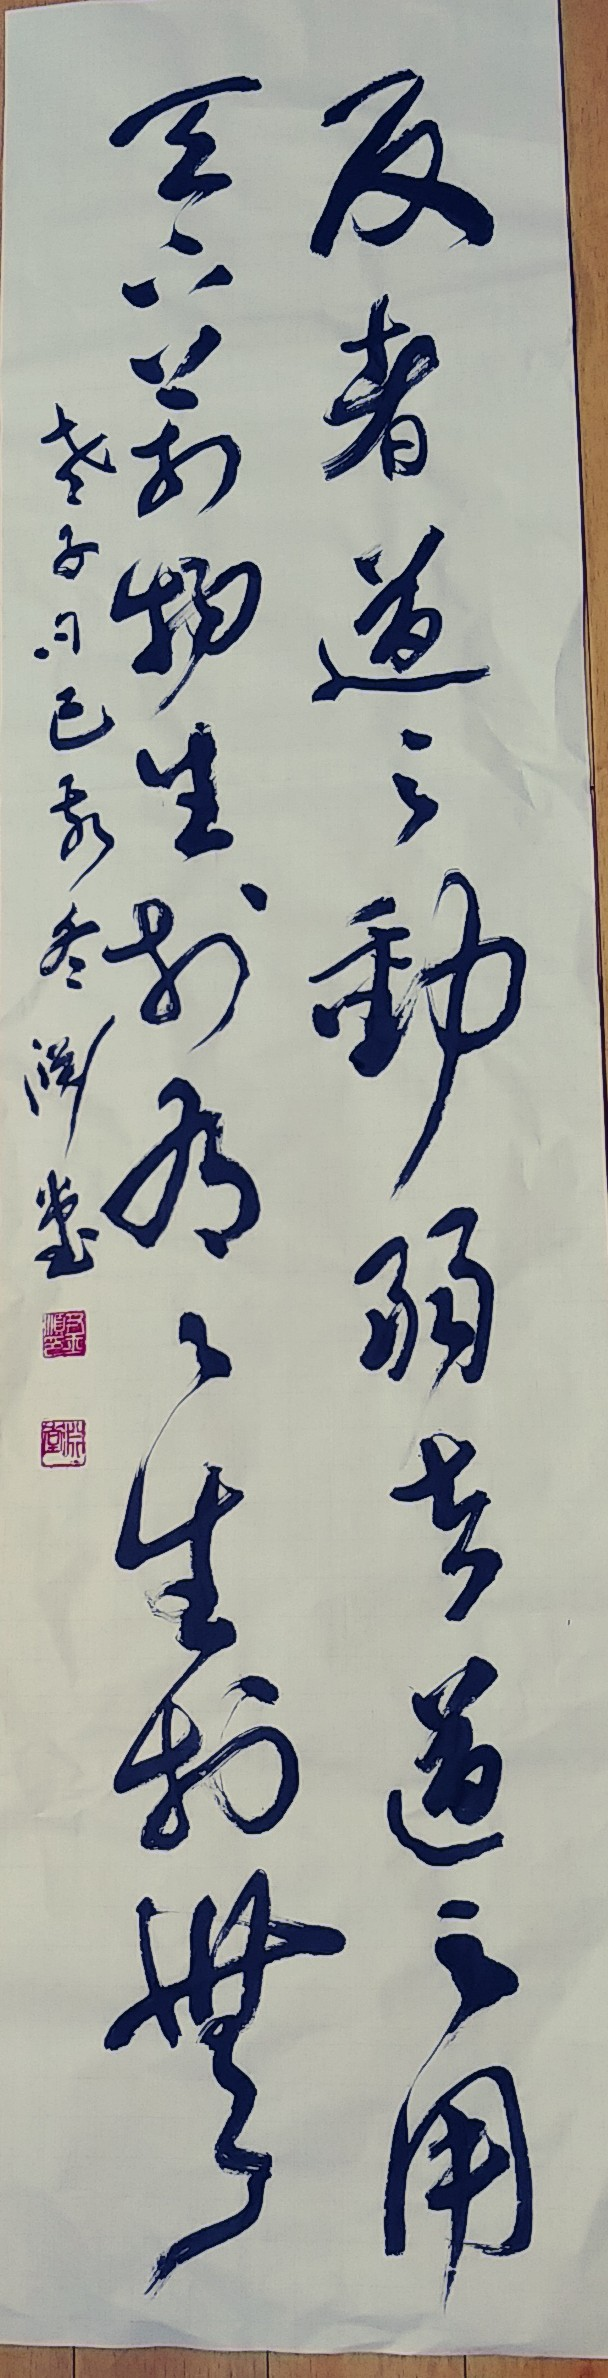 反者道之動弱者道之用
天下萬物生於有〻生於無
老子句己亥冬淵堂
淵堂